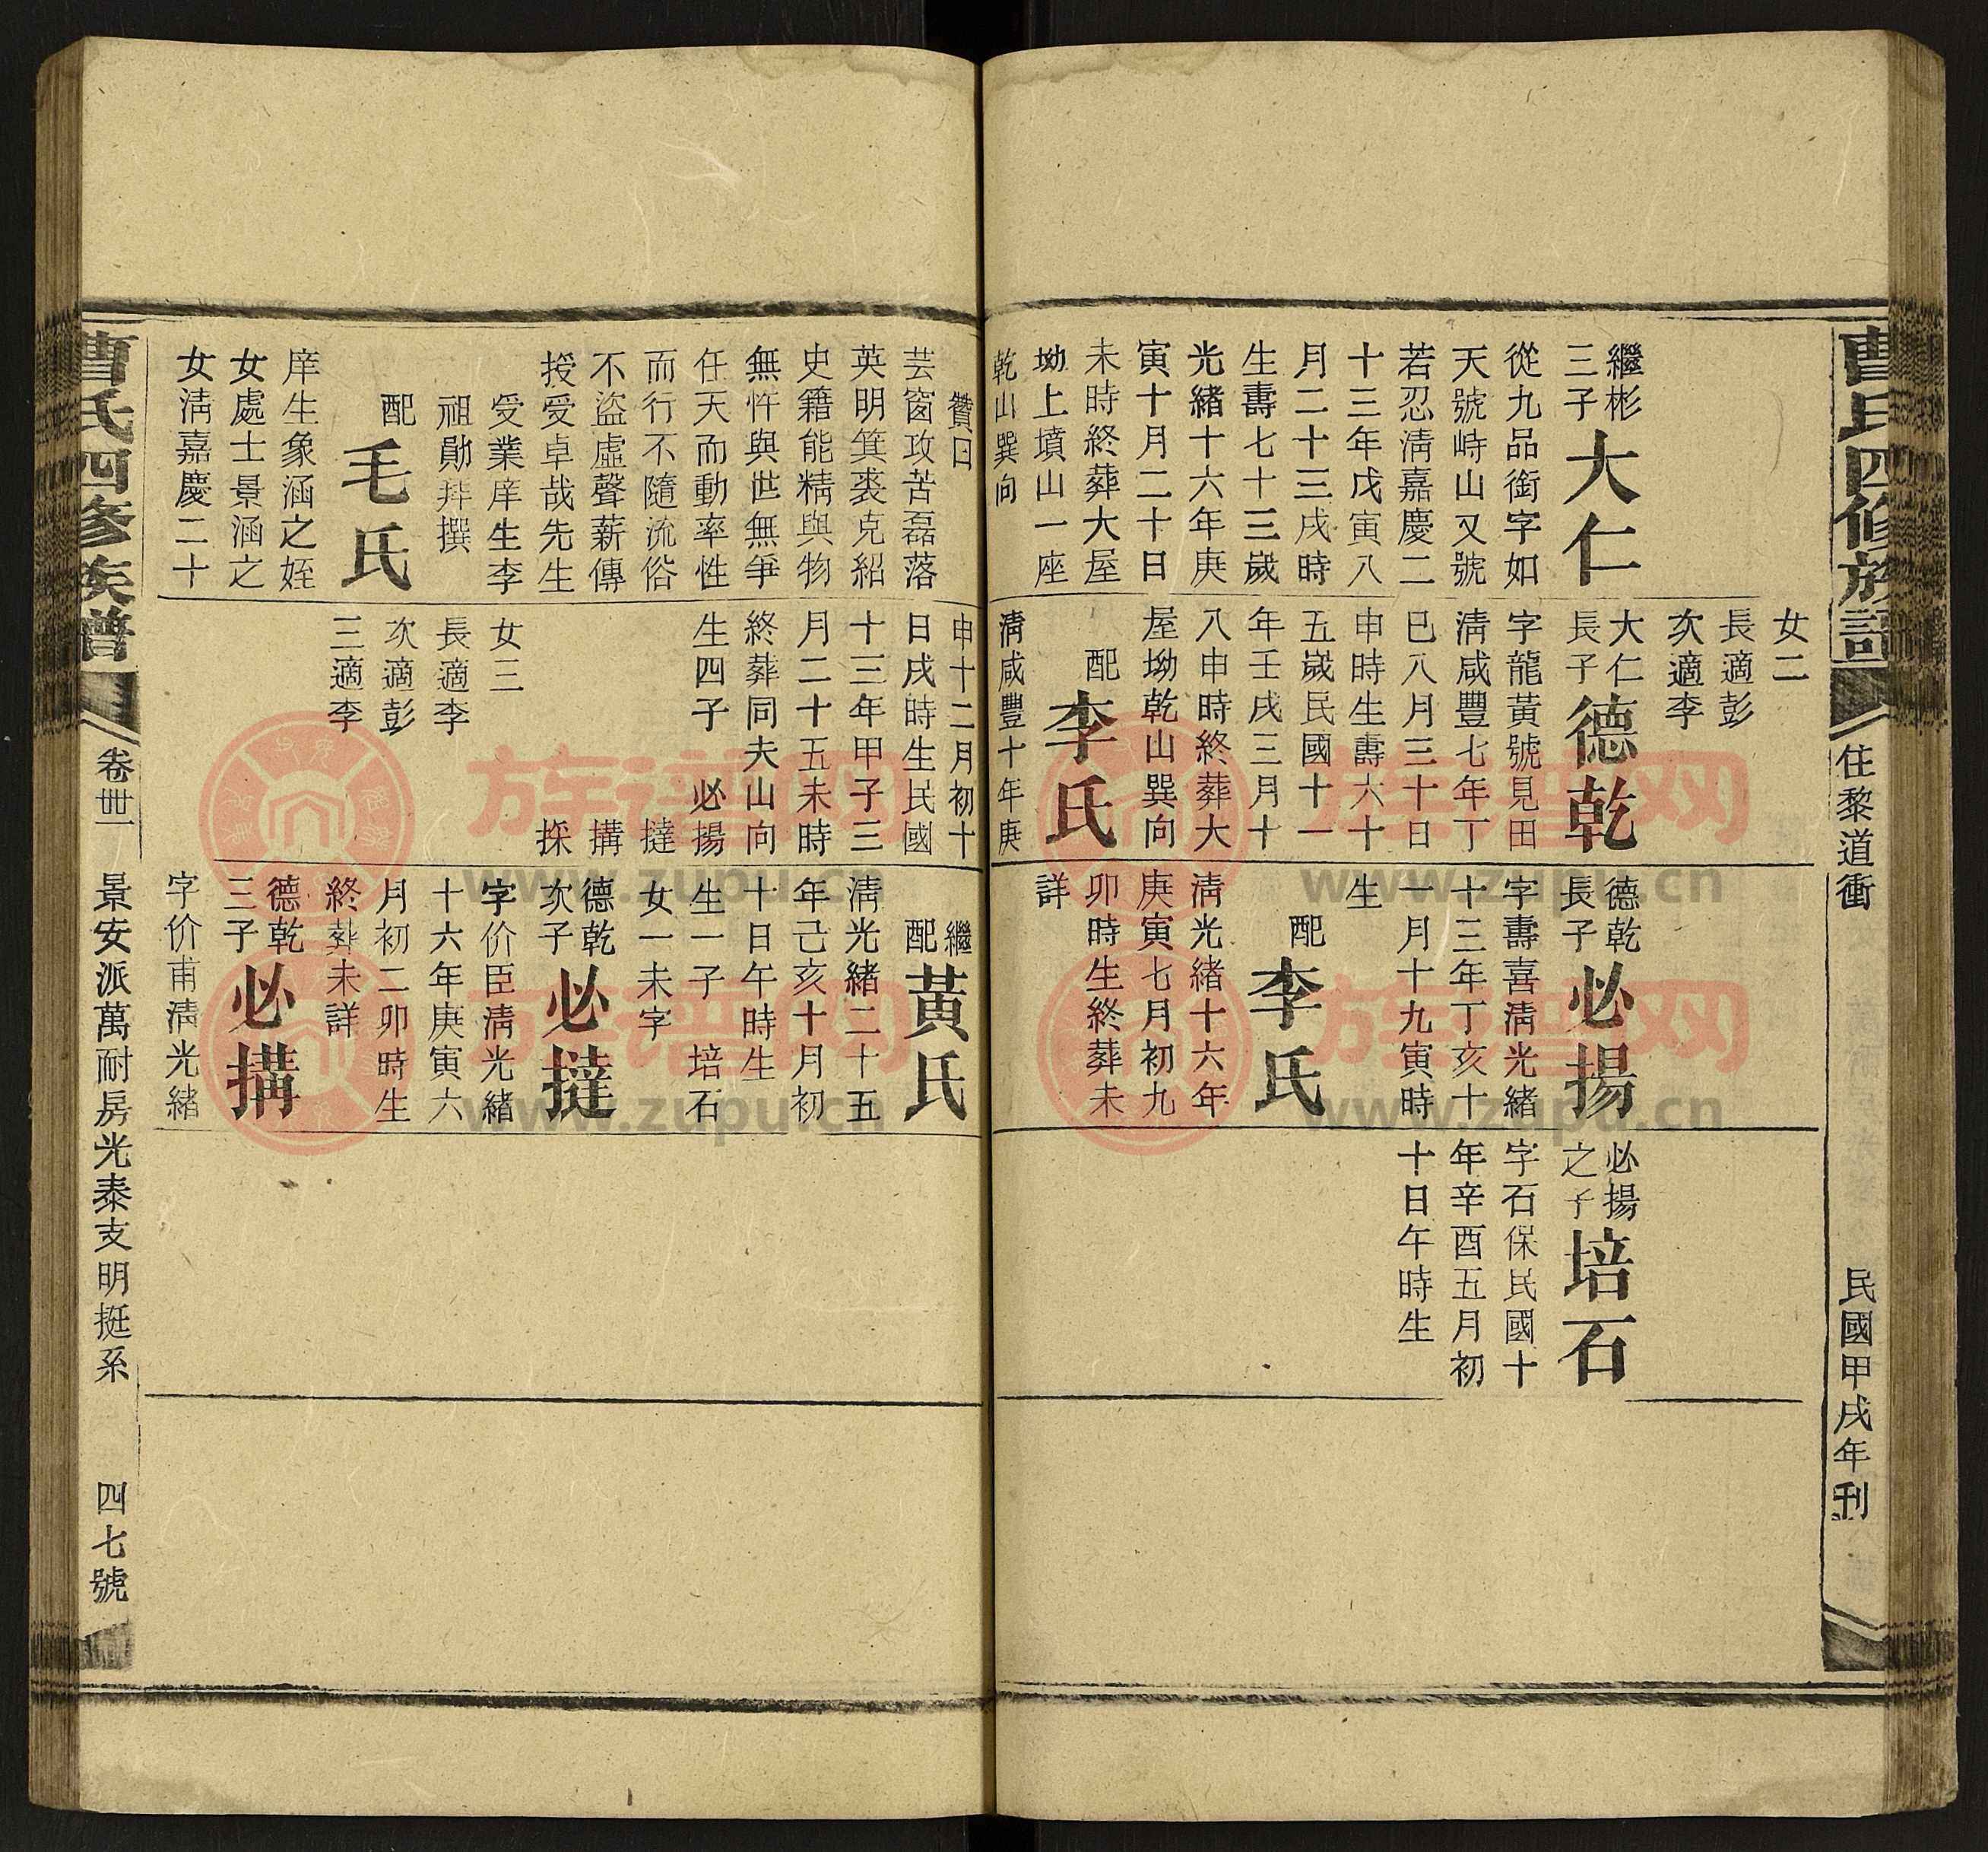 曹氏四修族譜
住黎道衝
民國甲戌年刊
繼彬
三子
大仁
從九品銜字如
天號峙山又號
若忍清嘉慶二
十三年戊寅八
月二十三戌時
生壽七十三歲
光緒十六年庚
寅十月二十日
未時終葬大屋
坳上墳山一座
乾山巽向
女二
長適彭
次適李
大仁
長子
德乾
字龍黃號見田
清咸豐七年丁
巳八月三十日
申時生壽六十
五歲民國十一
年壬戌三月十
八申時終葬大
屋坳乾山巽向
配
李氏
清咸豐十年庚
德乾
長子
必揚
字壽喜清光緒
十三年丁亥十
一月十九寅時
生
配
李氏
清光緒十六年
庚寅七月初九
卯時生終葬未
詳
必揚
之子
培石
字石保民國十
年辛酉五月初
十日午時生
贊曰
芸窗攻苦磊落
英明箕裘克紹
史籍能精與物
無忤與世無爭
任天而動率性
而行不隨流俗
不盜虛聲薪傳
授受卓哉先生
受業庠生李
祖勛拜撰
配
毛氏
庠生象涵之姪
女處士景涵之
女清嘉慶二十
申十二月初十
日戌時生民國
十三年甲子三
月二十五未時
終葬同夫山向
生四子 必揚
撻
搆
採
女三
長適李
次適彭
三適李
繼
配
黃氏
清光緒二十五
年己亥十月初
十日午時生
生一子 培石
女一未字
德乾
次子
必撻
字价臣清光緒
十六年庚寅六
月初二卯時生
終葬未詳
德乾
三子
必搆
字价甫清光緒
曹氏四修族譜
卷卅一
景安派萬耐房光泰支明挺系
四七號
族谱网
www.zupu.cn
族谱网
www.zupu.cn
族谱网
www.zupu.cn
族谱网
www.zupu.cn